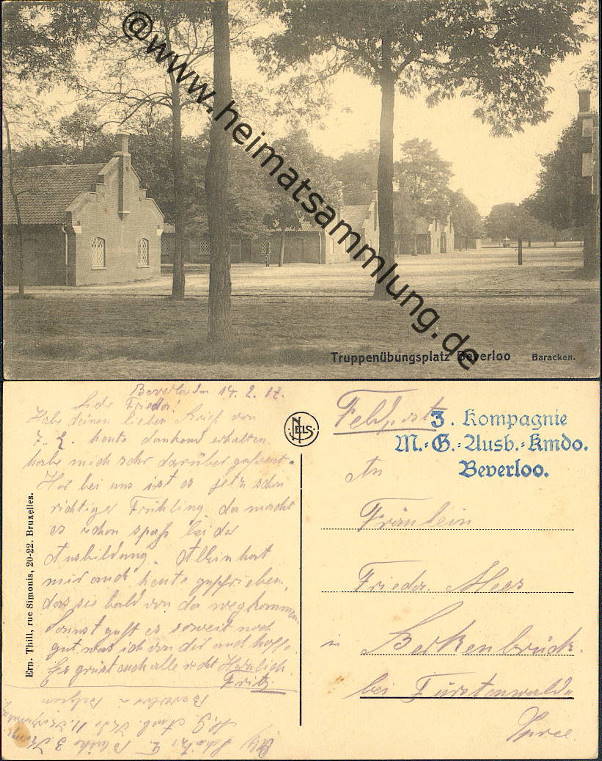 @www.heimatsammlung.de
Truppenübungsplatz Beverloo Baracken.
Beverloo 14. 2. 17.
Liebe Frieda!
Habe deinen lieben Brief vom
7. 2. heute dankend erhalten,
habe mich sehr darüber gefreut.
Hier bei uns ist es jetzt schon
richtiger Frühling, da macht
es schon spaß bei der
Ausbildung. Allein hat
mir auch heute geschrieben,
das sie bald von da wegkommen.
Sonnst geht es soweit noch
gut was ich von dir auch hoffe.
Es grüst auch alle recht Herzlich
Fritz
Beverloo Belgien
Ern. Thill, rue Simonis, 20-22. Bruxelles.
NELS
Feldpost
3. Kompagnie
M.-G.-Ausb.-Kmdo.
Beverloo.
An
Fräulein
Frieda
in Berkenbrück
bei Fürstenwalde
Spree.